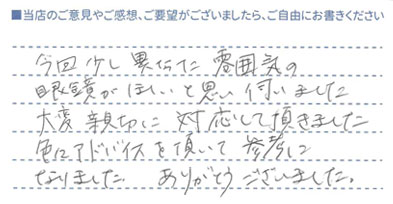 ■当店のご意見やご感想、ご要望がございましたら、ご自由にお書きください
今回少し異なった雰囲気の
眼鏡がほしいと思い伺いました
大変親切に対応して頂きました
色々アドバイスを頂いて参考に
なりました ありがとうございました。